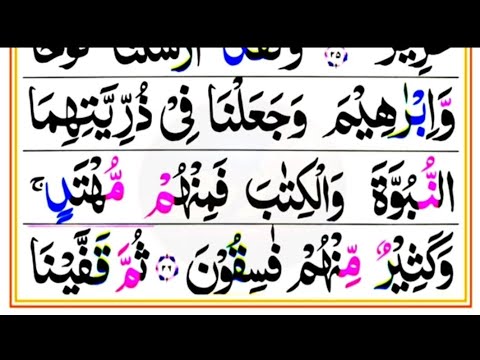 وَّاِبْرٰهِيْمَ وَجَعَلْنَا فِيْ ذُرِّيَّتِهِمَا
النُّبُوَّةَ وَالْكِتٰبَ فَمِنْهُمْ مُّهْتَدٍ ۚ
وَكَثِيْرٌ مِّنْهُمْ فٰسِقُوْنَ ۝۲۶ ثُمَّ قَفَّيْنَا